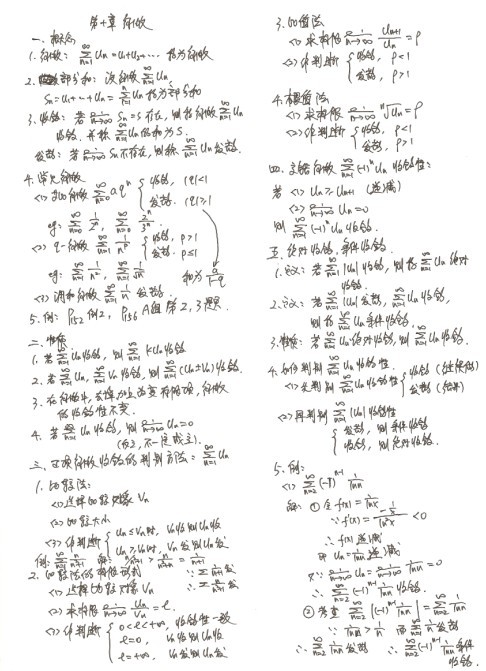 第十章 级数
一. 概念
1. 级数: \sum_{n=1}^{\infty} u_n = u_1+u_2+\cdots 称为级数
2. 部分和: 设级数 \sum_{n=1}^{\infty} u_n,
S_n = u_1+\cdots+u_n = \sum u_n 称为部分和
3. 收敛: 若 \lim_{n\to\infty} S_n = S 存在, 则称级数 \sum_{n=1}^{\infty} u_n
收敛, 并称 \sum_{n=1}^{\infty} u_n 的和为 S.
发散: 若 \lim_{n\to\infty} S_n 不存在, 则称 \sum_{n=1}^{\infty} u_n 发散.
4. 常见级数
<1> 几何级数 \sum_{n=0}^{\infty} aq^n { 收敛, |q|<1
发散, |q|≥1
eg: \sum_{n=0}^{\infty} \frac{1}{2^n}, \sum_{n=0}^{\infty} \frac{2^n}{3^n}.
<2> p-级数 \sum_{n=1}^{\infty} \frac{1}{n^p} { 收敛, p>1
发散, p≤1
eg: \sum_{n=1}^{\infty} \frac{1}{n^2}, \sum_{n=1}^{\infty} \frac{1}{\sqrt{n}} 和为 \frac{a}{1-q}
<3> 调和级数 \sum_{n=1}^{\infty} \frac{1}{n} 发散.
5. 例: P_{152} 例2, P_{156} A组 第2, 3题.
二. 性质
1. 若 \sum_{n=1}^{\infty} u_n 收敛, 则 \sum_{n=1}^{\infty} ku_n 收敛
2. 若 \sum_{n=1}^{\infty} u_n, \sum_{n=1}^{\infty} v_n 收敛, 则 \sum_{n=1}^{\infty} (u_n±v_n) 收敛.
3. 在级数中, 去掉加上改变有限项, 级数
的收敛性不变.
4. 若 \sum_{n=1}^{\infty} u_n 收敛, 则 \lim_{n\to\infty} u_n = 0
(反之, 不一定成立).
三. 正项级数收敛的判别方法: \sum_{n=1}^{\infty} u_n
1. 比较法:
<1> 选择比较对象 v_n
<2> 比较大小
<3> 作判断 { u_n ≤ v_n 时, v_n收则u_n收
u_n ≥ v_n 时, v_n发则u_n发
2. 比较法的极限形式
<1> 选择比较对象 v_n
<2> 求极限 \lim_{n\to\infty} \frac{u_n}{v_n} = l.
<3> 作判断 { 0<l<+∞, 收敛性一致
l=0, v_n收则u_n收
l=+∞, v_n发则u_n发
3. 比值法
<1> 求极限 \lim_{n\to\infty} \frac{u_{n+1}}{u_n} = ρ
<2> 作判断 { 收敛, ρ<1
发散, ρ>1
4. 根值法
<1> 求极限 \lim_{n\to\infty} \sqrt[n]{u_n} = ρ
<2> 作判断 { 收敛, ρ<1
发散, ρ>1
四. 交错级数 \sum_{n=1}^{\infty} (-1)^n u_n 收敛性:
若 <1> u_n ≥ u_{n+1} (递减)
<2> \lim_{n\to\infty} u_n = 0
则 \sum_{n=1}^{\infty} (-1)^n u_n 收敛.
五. 绝对收敛, 条件收敛.
1. 定义: 若 \sum_{n=1}^{\infty} |u_n| 收敛, 则称 \sum_{n=1}^{\infty} u_n 绝对
收敛.
2. 定义: 若 \sum_{n=1}^{\infty} |u_n| 发散, \sum_{n=1}^{\infty} u_n 收敛,
则称 \sum_{n=1}^{\infty} u_n 条件收敛.
3. 性质: 若 \sum_{n=1}^{\infty} u_n 绝对收敛, 则 \sum_{n=1}^{\infty} u_n 收敛.
4. 如何判别 \sum_{n=1}^{\infty} u_n 收敛性
<1> 先判别 \sum_{n=1}^{\infty} u_n 收敛性 { 收敛 (继续做)
发散 (结束)
<2> 再判别 \sum_{n=1}^{\infty} |u_n| 收敛性
{ 发散, 则条件收敛
收敛, 则绝对收敛.
5. 例:
<1> \sum_{n=2}^{\infty} (-1)^{n-1} \frac{1}{\ln n}
解: ① 令 f(x) = \frac{1}{\ln x}
∵ f'(x) = \frac{-\frac{1}{x}}{\ln^2 x} < 0
∴ f(x) 递减
即 u_n = \frac{1}{\ln n} 递减;
又∵ \lim_{n\to\infty} u_n = \lim_{n\to\infty} \frac{1}{\ln n} = 0
∴ \sum_{n=2}^{\infty} (-1)^{n-1} \frac{1}{\ln n} 收敛.
② 考查 \sum_{n=2}^{\infty} |(-1)^{n-1} \frac{1}{\ln n}| = \sum_{n=2}^{\infty} \frac{1}{\ln n}
∵ \frac{1}{\ln n} > \frac{1}{n} 而 \sum \frac{1}{n} 发散
∴ \sum_{n=2}^{\infty} \frac{1}{\ln n} 发散 ∴ \sum_{n=2}^{\infty} (-1)^{n-1} \frac{1}{\ln n} 条件
收敛.